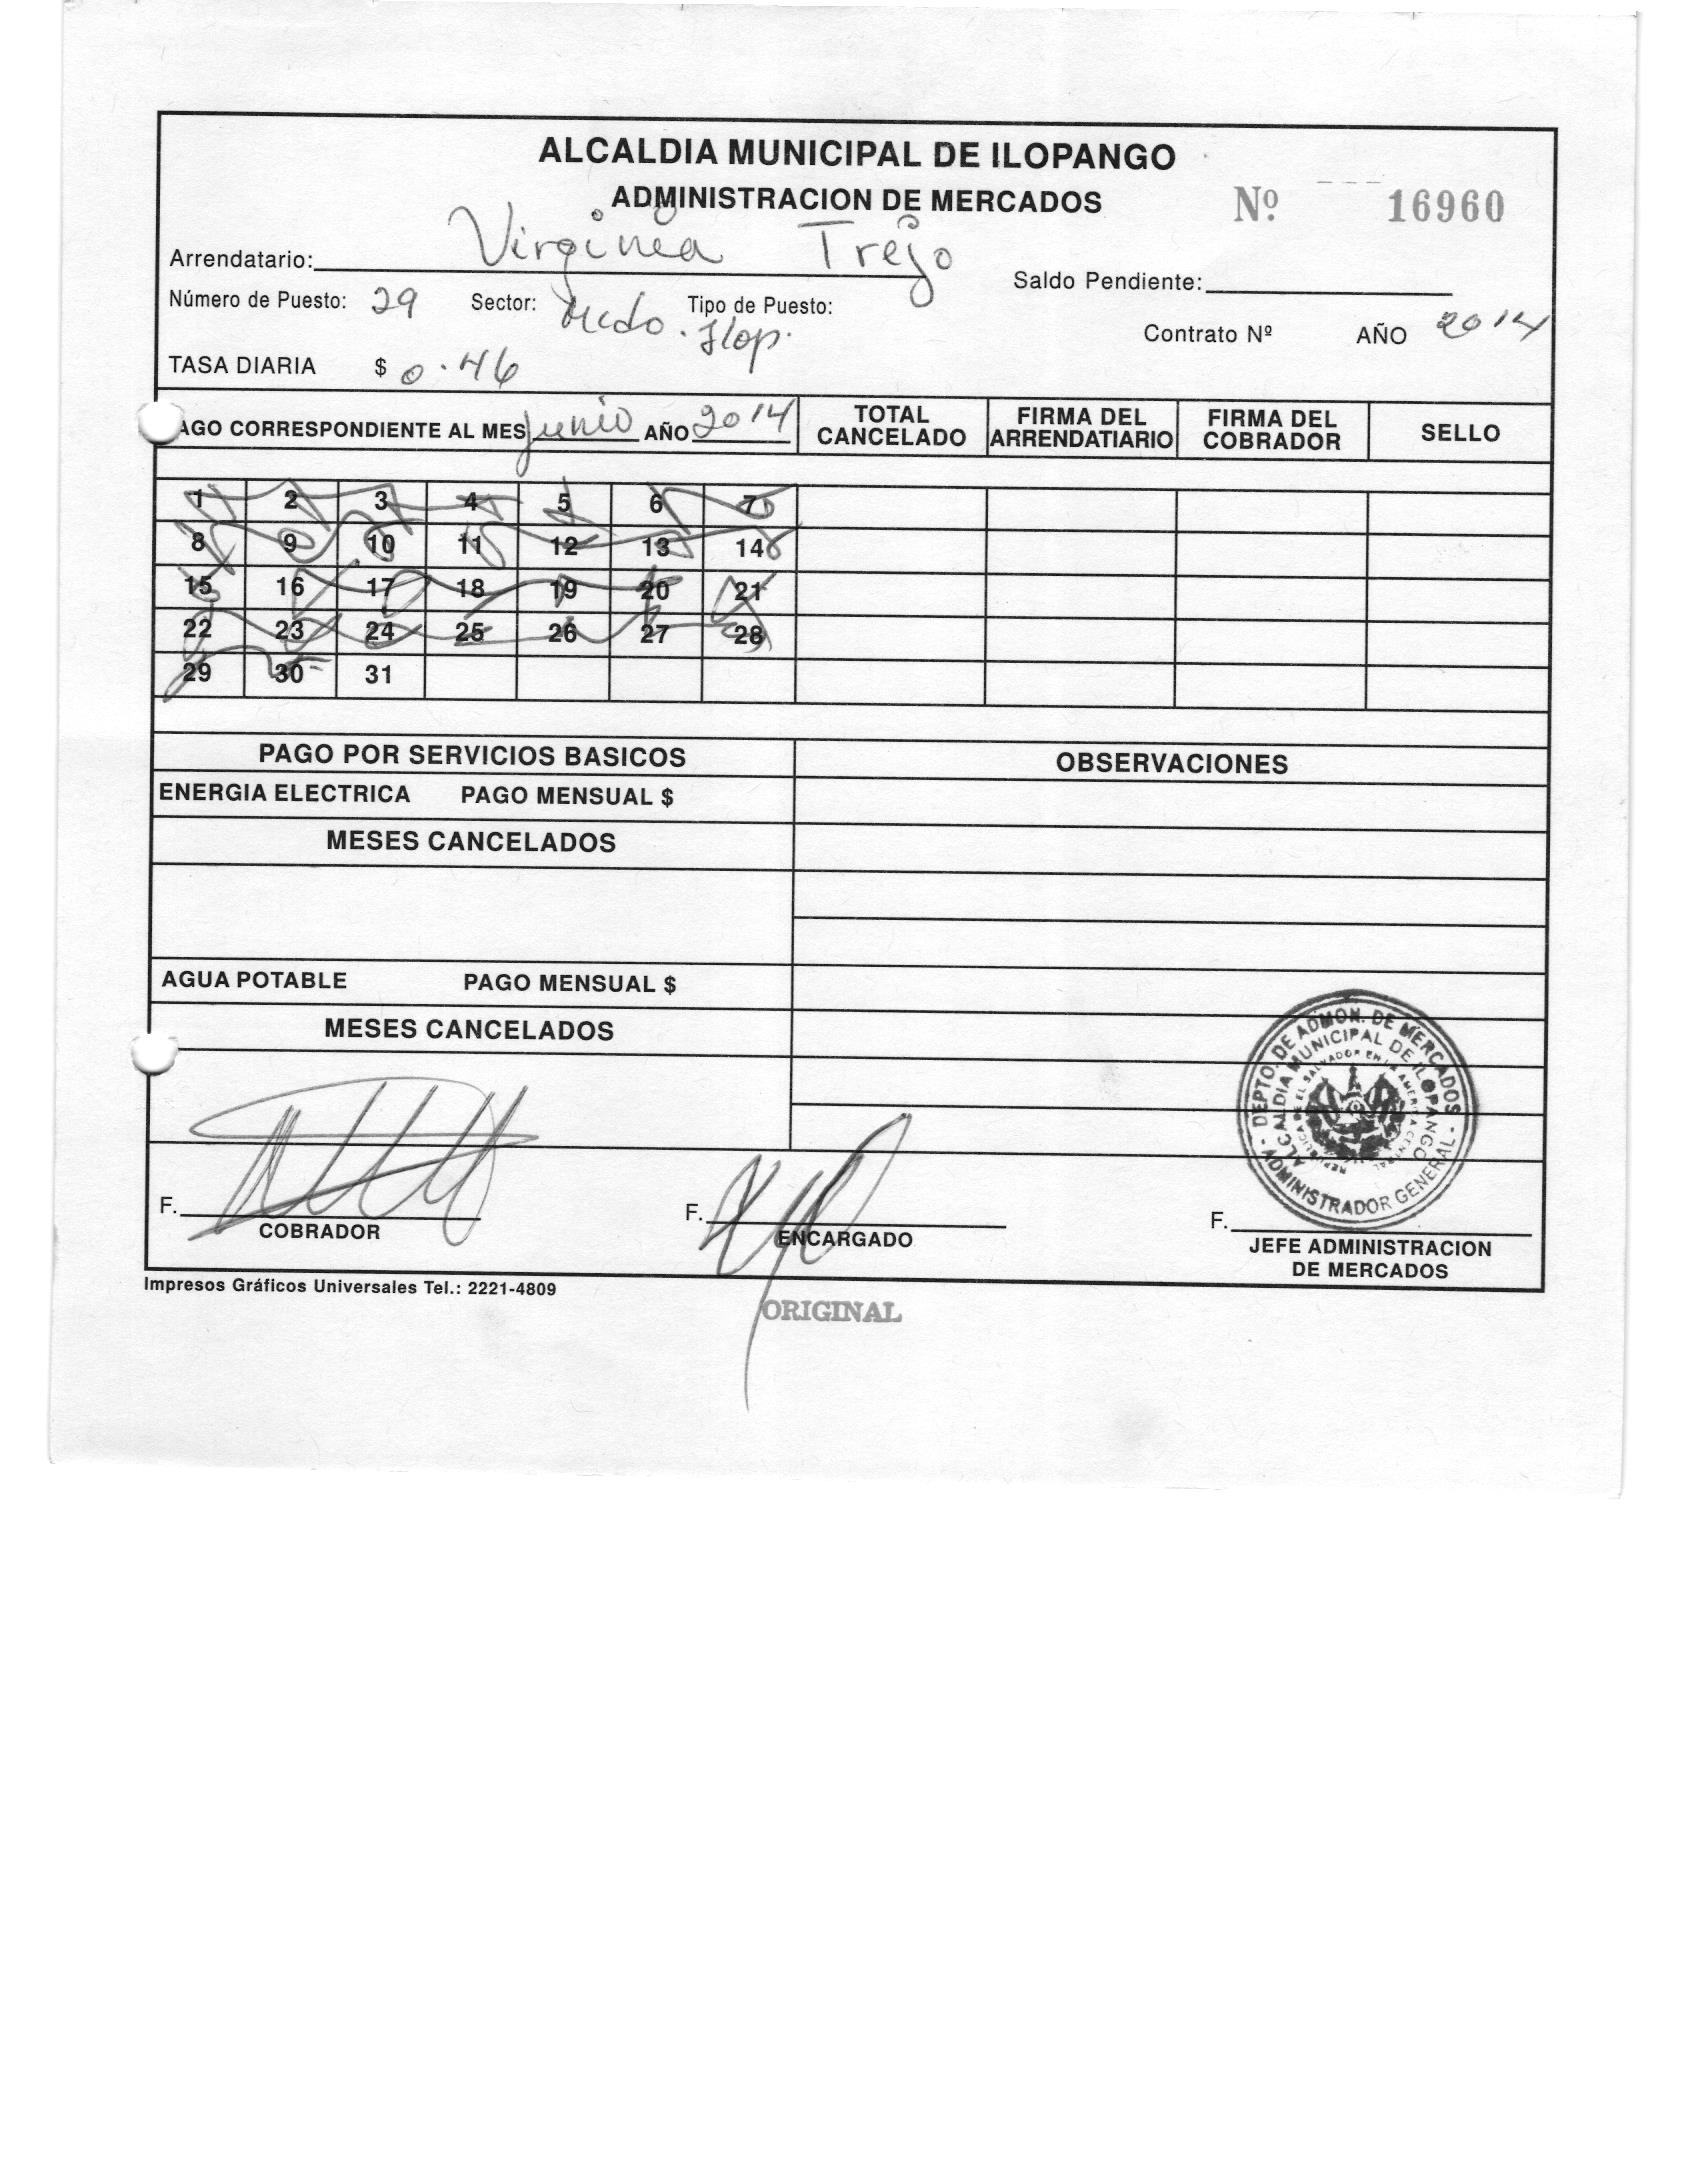 ALCALDIA MUNICIPAL DE ILOPANGO
ADMINISTRACION DE MERCADOS
Nº 16960
Arrendatario: Virginia Trejo
Saldo Pendiente:
Número de Puesto: 29 Sector: Mcdo. Ilop. Tipo de Puesto:
Contrato Nº AÑO 2014
TASA DIARIA $ 0.46
AGO CORRESPONDIENTE AL MES Junio AÑO 2014
TOTAL CANCELADO
FIRMA DEL ARRENDATIARIO
FIRMA DEL COBRADOR
SELLO
1 2 3 4 5 6 7
8 9 10 11 12 13 14
15 16 17 18 19 20 21
22 23 24 25 26 27 28
29 30 31
PAGO POR SERVICIOS BASICOS
OBSERVACIONES
ENERGIA ELECTRICA PAGO MENSUAL $
MESES CANCELADOS
AGUA POTABLE PAGO MENSUAL $
MESES CANCELADOS
DEPTO. DE ADMON. DE MERCADOS
ALCALDIA MUNICIPAL DE ILOPANGO
REPUBLICA DE EL SALVADOR EN LA AMERICA CENTRAL
- ADMINISTRADOR GENERAL -
F.
COBRADOR
F.
ENCARGADO
F.
JEFE ADMINISTRACION
DE MERCADOS
Impresos Gráficos Universales Tel.: 2221-4809
ORIGINAL